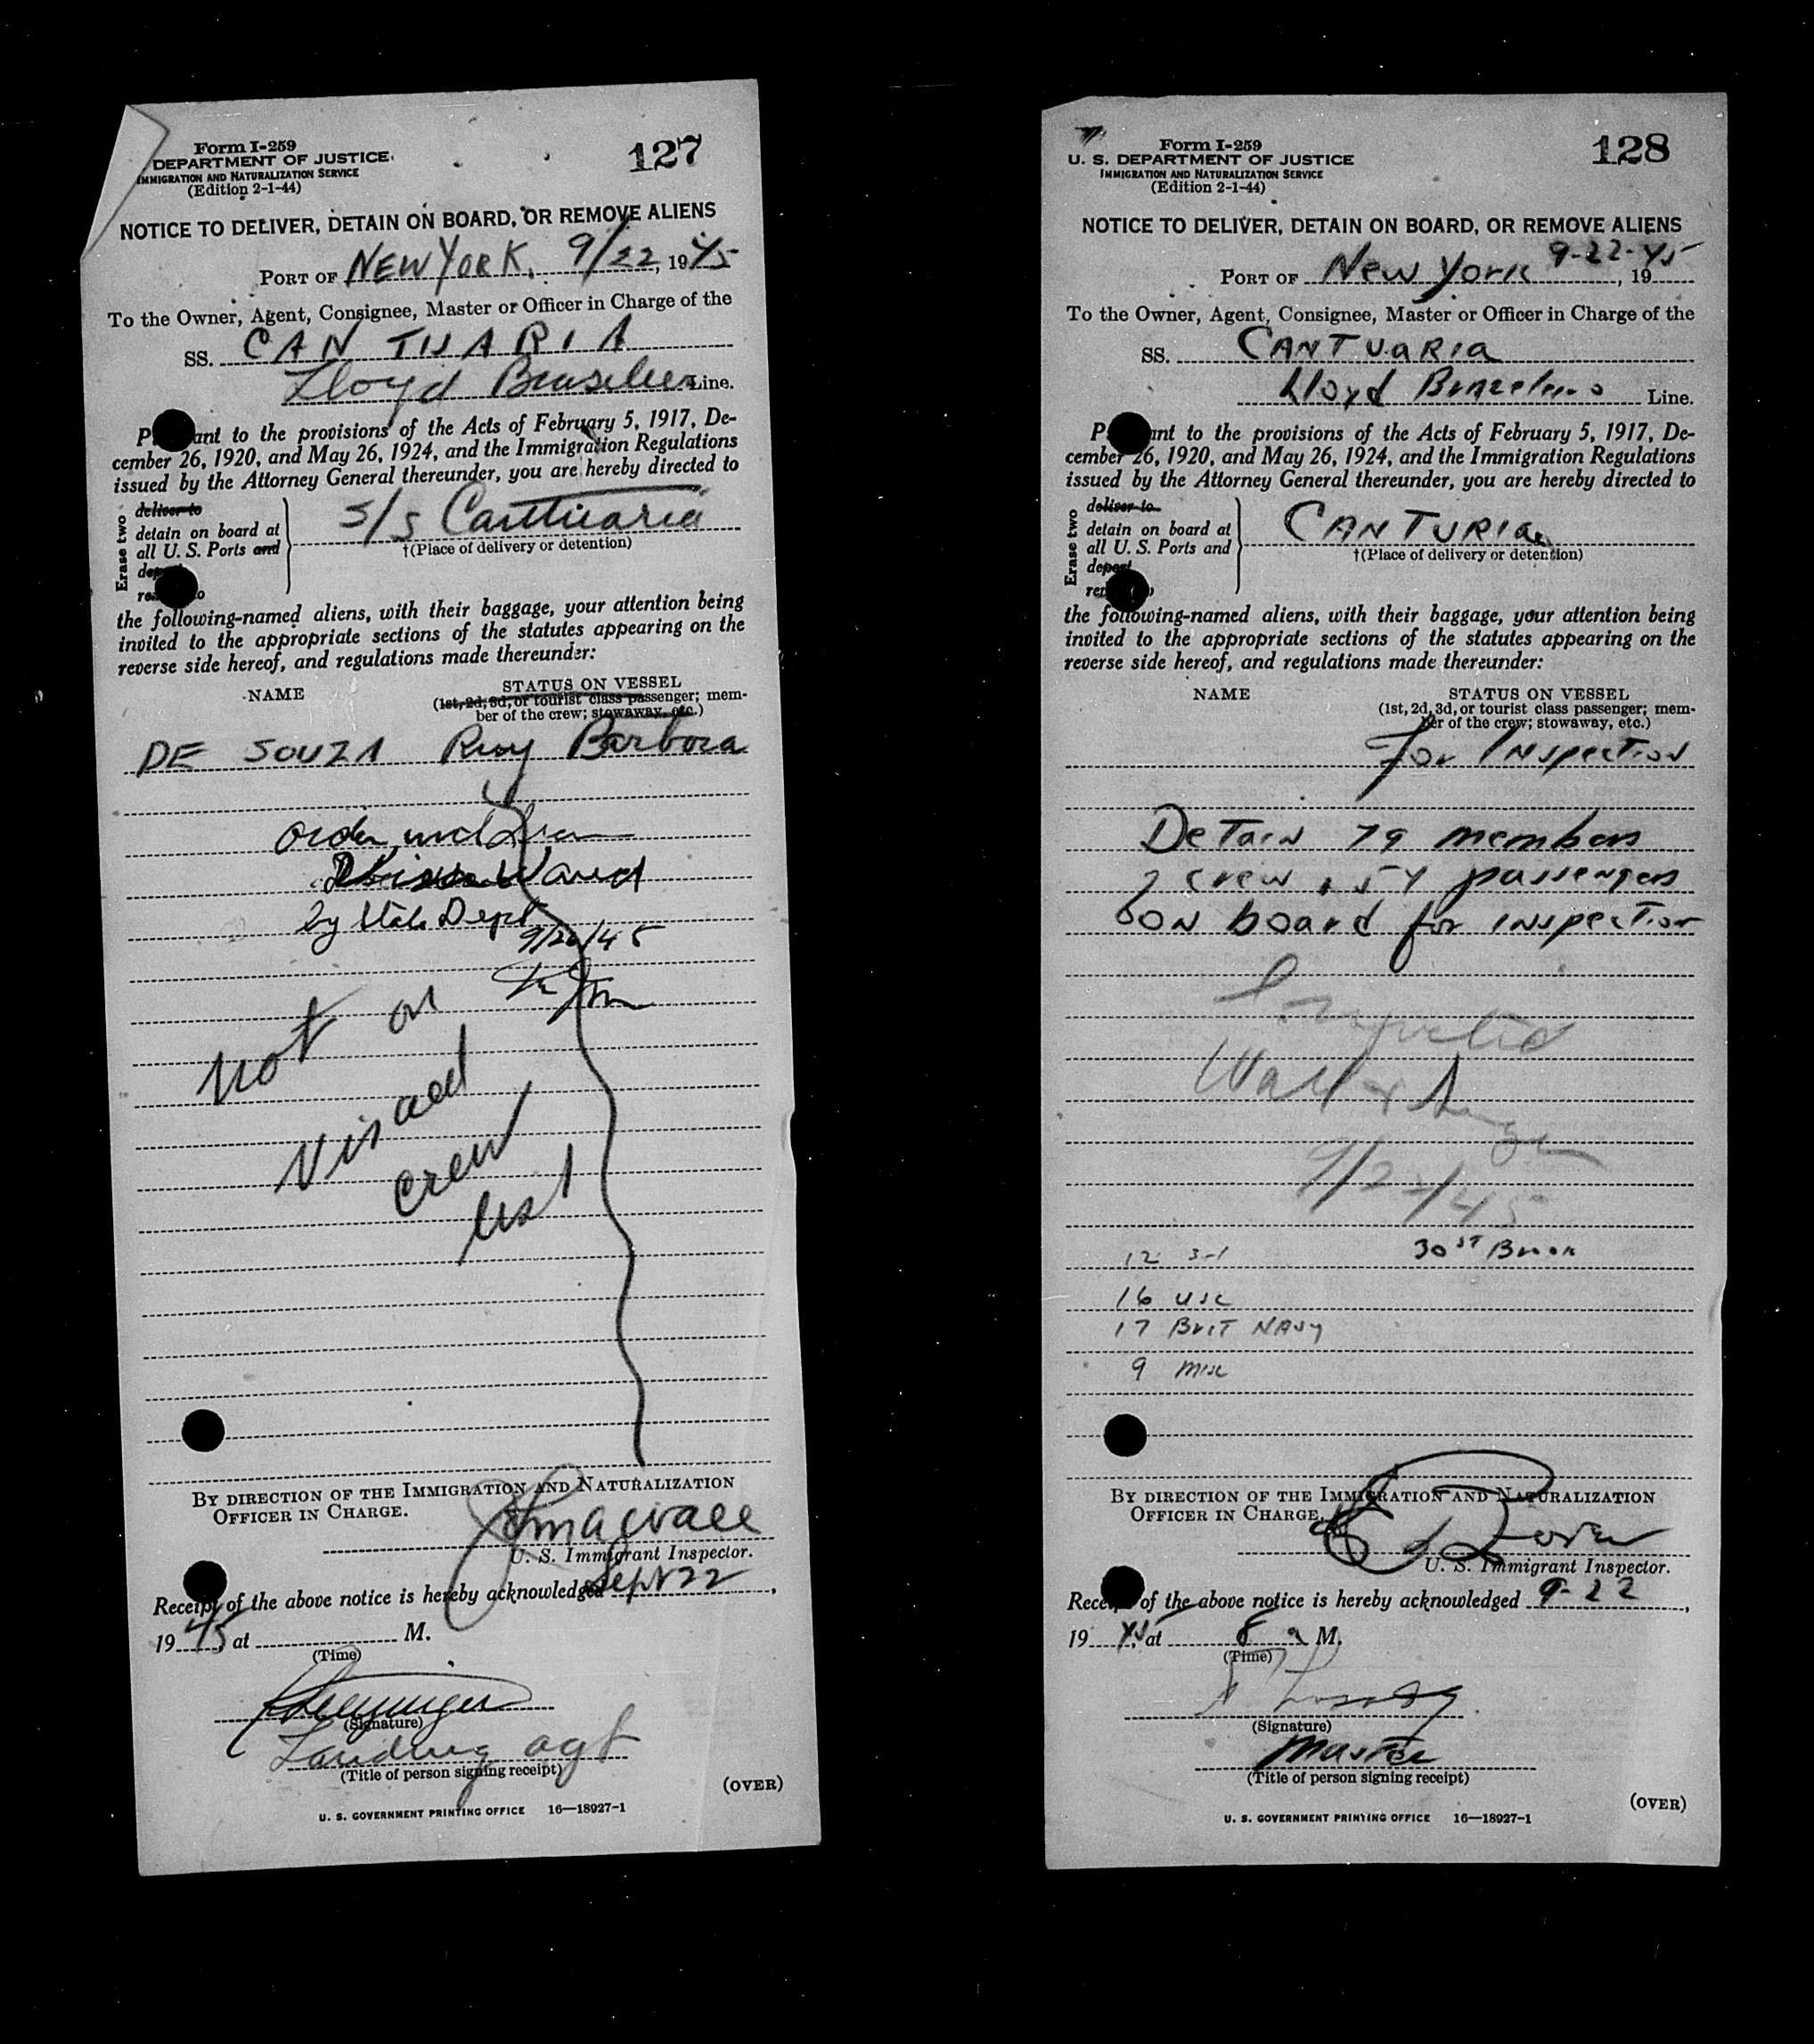 Form I-259
DEPARTMENT OF JUSTICE
IMMIGRATION AND NATURALIZATION SERVICE
(Edition 2-1-44)
127
NOTICE TO DELIVER, DETAIN ON BOARD, OR REMOVE ALIENS
PORT OF NEW YORK, 9/22, 1945
To the Owner, Agent, Consignee, Master or Officer in Charge of the
SS. CANTUARIA
Lloyd Line.
ant to the provisions of the Acts of February 5, 1917, De-
cember 26, 1920, and May 26, 1924, and the Immigration Regulations
issued by the Attorney General thereunder, you are hereby directed to
Erase two
deliver to
detain on board at
all U. S. Ports and
S/S Cantuaria
†(Place of delivery or detention)
the following-named aliens, with their baggage, your attention being
invited to the appropriate sections of the statutes appearing on the
reverse side hereof, and regulations made thereunder:
NAME
STATUS ON VESSEL
(1st, 2d, 3d, or tourist class passenger; mem-
ber of the crew; stowaway, etc.)
DE SOUZA Ruy Barbosa
Order
by State Dept
not on
visaed
crew
list
BY DIRECTION OF THE IMMIGRATION AND NATURALIZATION
OFFICER IN CHARGE.
U. S. Immigrant Inspector.
Receipt of the above notice is hereby acknowledged Sept 22,
1945, at M.
(Time)
(Signature)
Landing agt
(Title of person signing receipt)
(OVER)
U. S. GOVERNMENT PRINTING OFFICE 16—18927-1
Form I-259
U. S. DEPARTMENT OF JUSTICE
IMMIGRATION AND NATURALIZATION SERVICE
(Edition 2-1-44)
128
NOTICE TO DELIVER, DETAIN ON BOARD, OR REMOVE ALIENS
PORT OF New York 9-22-45, 19
To the Owner, Agent, Consignee, Master or Officer in Charge of the
SS. CANTUARIA
Lloyd Line.
ant to the provisions of the Acts of February 5, 1917, De-
cember 26, 1920, and May 26, 1924, and the Immigration Regulations
issued by the Attorney General thereunder, you are hereby directed to
Erase two
deliver to
detain on board at
all U. S. Ports and
deport
CANTURIA
†(Place of delivery or detention)
the following-named aliens, with their baggage, your attention being
invited to the appropriate sections of the statutes appearing on the
reverse side hereof, and regulations made thereunder:
NAME
STATUS ON VESSEL
(1st, 2d, 3d, or tourist class passenger; mem-
ber of the crew; stowaway, etc.)
For Inspection
Detain 79 members
crew 54 passengers
on board for inspection
Inspected
12 3-1
30 ST
16 USC
17 BRIT NAVY
9 misc
BY DIRECTION OF THE IMMIGRATION AND NATURALIZATION
OFFICER IN CHARGE.
U. S. Immigrant Inspector.
Receipt of the above notice is hereby acknowledged 9-22,
1945, at 8 a M.
(Time)
(Signature)
Master
(Title of person signing receipt)
(OVER)
U. S. GOVERNMENT PRINTING OFFICE 16—18927-1